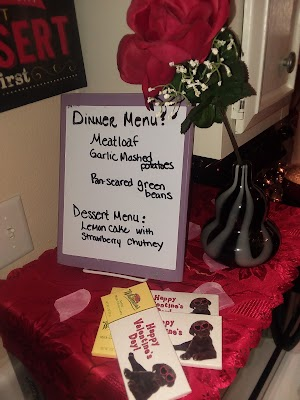 SSERT
First
Dinner Menu:
Meatloaf
Garlic Mashed
potatoes
Pan-seared green
beans
Dessert Menu:
Lemon Cake with
Strawberry Chutney
Happy
Valentine's
Day!
Happy
Valentine's
Day!